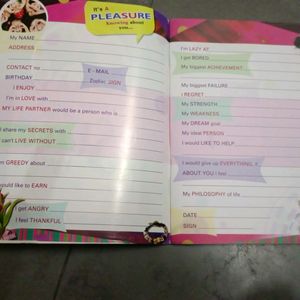 It's A
PLEASURE
Knowing about
you...
My NAME
ADDRESS
CONTACT no
E - MAIL
BIRTHDAY
Zodiac SIGN
I ENJOY
I'm in LOVE with
MY LIFE PARTNER would be a person who is
I share my SECRETS with
I can't LIVE WITHOUT
I'm GREEDY about
would like to EARN
I get ANGRY
I feel THANKFUL
I'm LAZY AT
I get BORED
My biggest ACHIEVEMENT
My biggest FAILURE
I REGRET
My STRENGTH
My WEAKNESS
My DREAM goal
My ideal PERSON
I would LIKE TO HELP
I would give up EVERYTHING
ABOUT YOU I feel
My PHILOSOPHY of life
DATE
SIGN